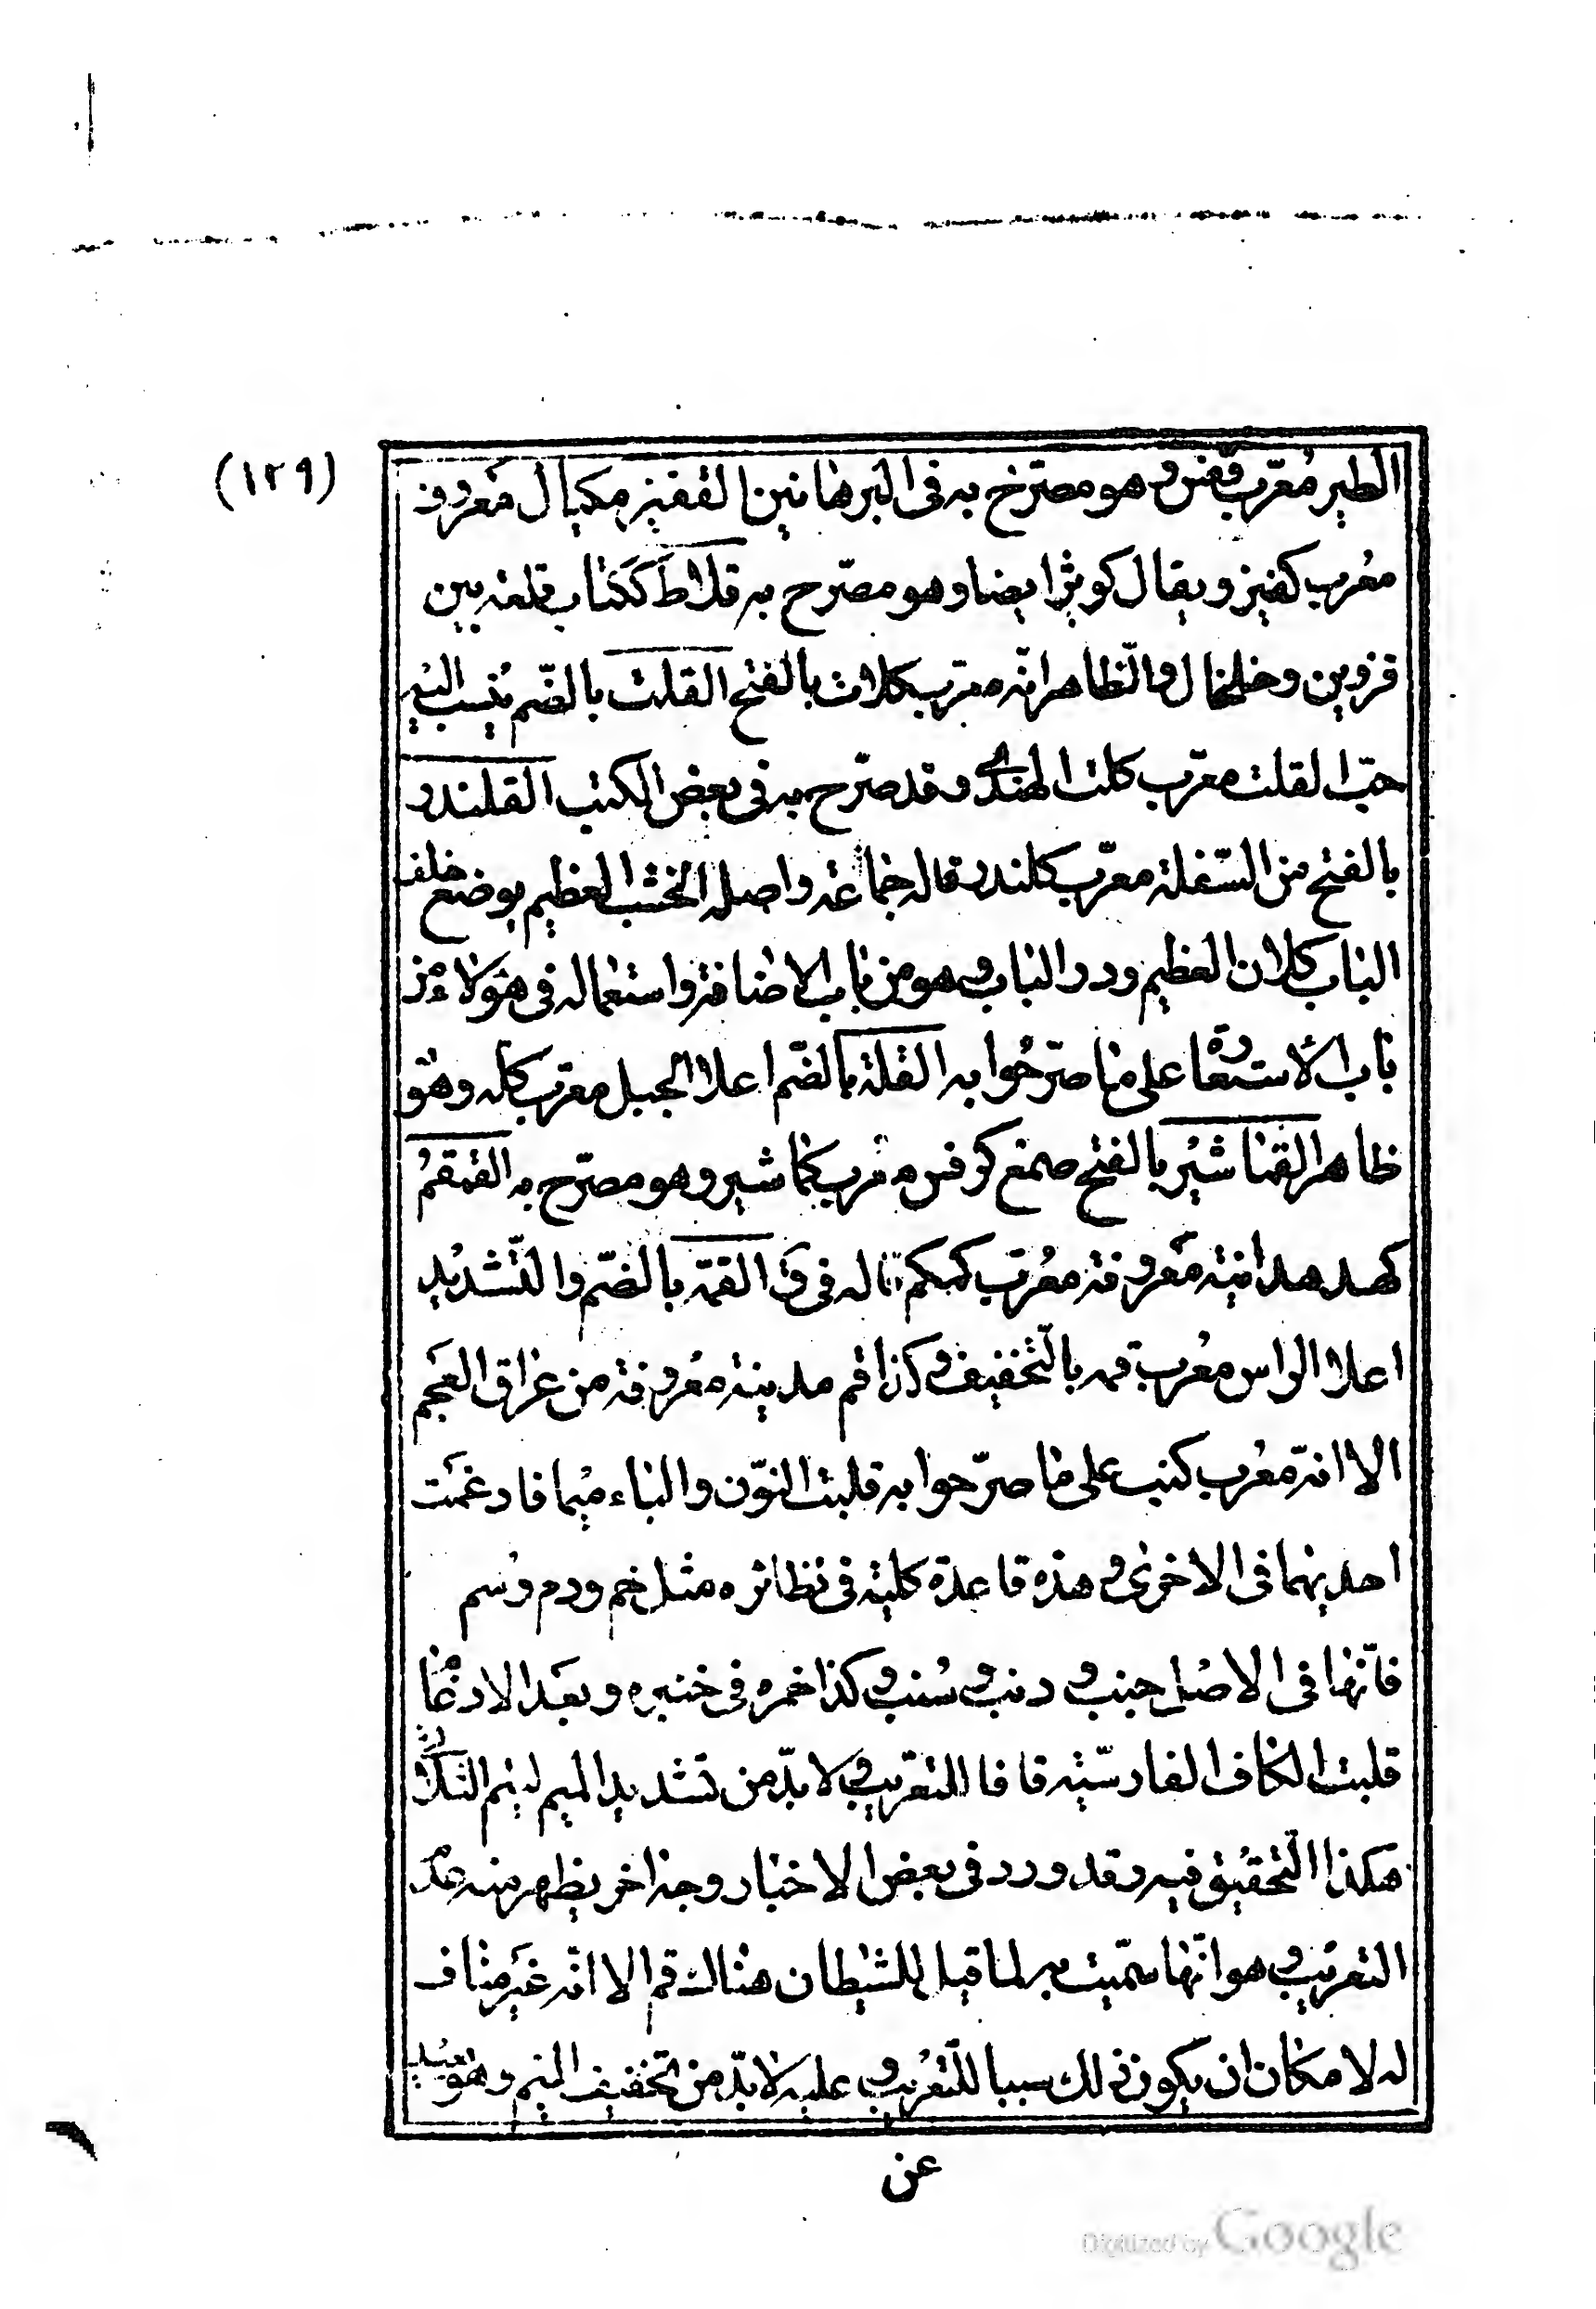 (١٢٩)
الطير مُعرّب قفس وهو مصرّح به في البرهانين القفيز مكيال معروف
معرب كفيز ويقال كويژ ايضا وهو مصرّح به قلاط ككتاب قلعة بين
قزوين وخلخال والظاهر انّه معرّب كلات بالفتح القلت بالضّم ينسب اليه
حبّ القلت معرّب كلت الهندي وقد صرّح به في بعض الكتب القلندر
بالفتح من السّفلة معرّب كلندر قاله جماعة واصله الخشب العظيم يوضع خلف
الباب كلان العظيم ودر الباب وهو من باب الاضافة واستعماله في هؤلاء من
باب الأستعارة على ما صرّحوا به القلة بالضّم اعلا الجبل معرّب كله وهو
ظاهر القناشير بالفتح صمغ كرفس معرب كماشير وهو مصرّح به القمقمُ
كهدهد انية معروفة معرّب كمكم قاله في ق القمّة بالضّم والتّشديد
اعلا الراس معرب قمه بالتّخفيف وكذا قم مدينة معروفة من عراق العجم
الا انّه معرب كنب على ما صرّحوا به قلبت النّون والباء ميما فادغمت
احديهما في الاخرى وهذه قاعدة كلية في نظائره مثل خم ودم وسم
فانّها في الاصل خنب ودنب وسُنب وكذا خمره في خنبره وبعد الادغام
قلبت الكاف الفارسّية قافا للتعريب ولا بدّ من تشديد الميم ليتم الثلاثي
هكذا التّحقيق فيه وقد ورد في بعض الاخبار وجه اخر يظهر منه عدم
التعريب وهو انّها سمّيت به لما قيل للشيطان هناك قم الا انّه غير مناف
له لامكان ان يكون ذلك سببا للّتعريب وعليه لابدّ من تخفيف الميم وهو بعيد
عن
Digitized by Google